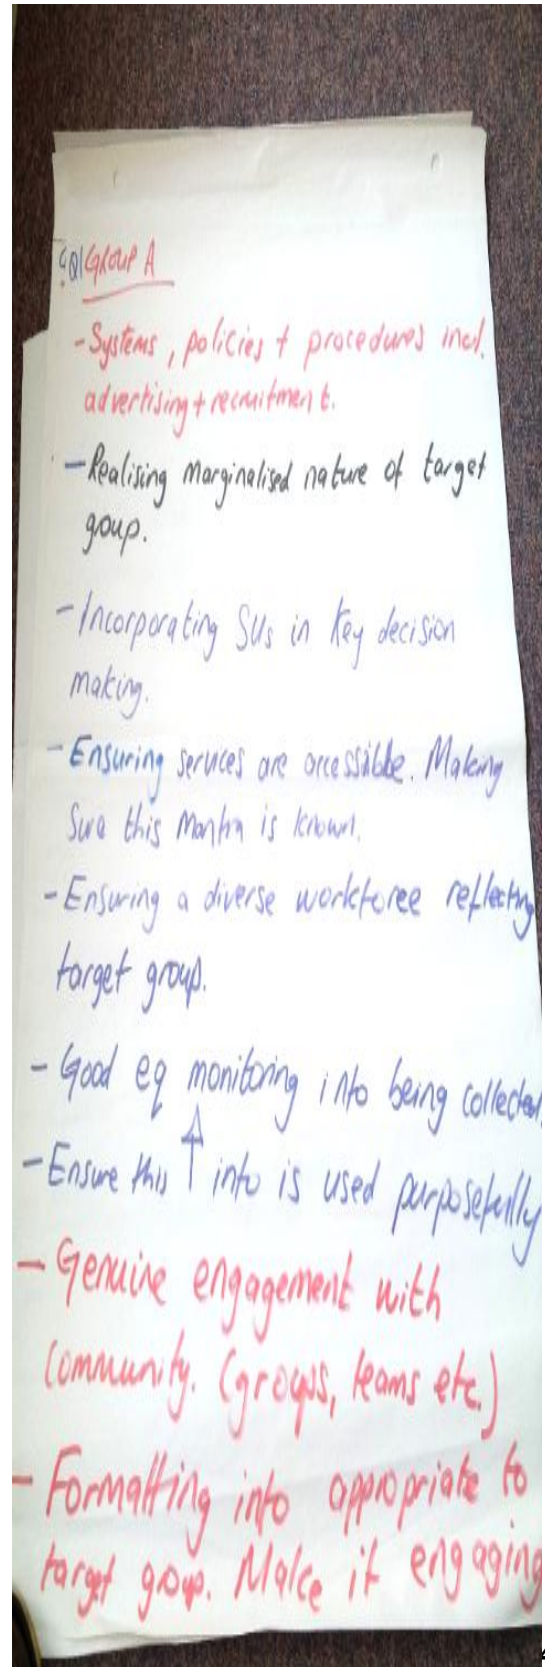 Q1 GROUP A
- Systems, policies + procedures incl.
advertising + recruitment.
- Realising marginalised nature of target
goup.
- Incorporating SUs in key decision
making.
- Ensuring services are accessible. Making
sure this mantra is known.
- Ensuring a diverse workforce reflecting
target group.
- Good eq monitoring info being collected.
- Ensure this ↑ info is used purposefully
- Genuine engagement with
community. (groups, teams etc.)
- Formatting info appropriate to
target group. Make it engaging